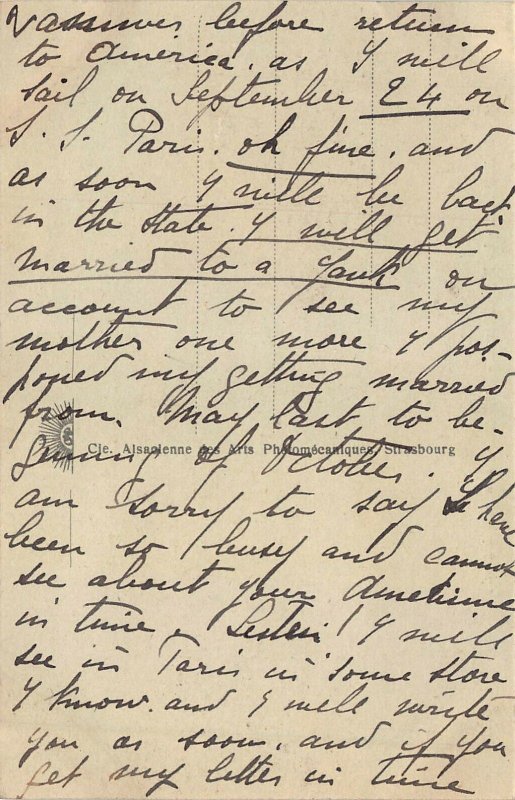 before return
to America. as I will
sail on September 24 on
S. S. Paris. oh fine. and
as soon I will be back
in the State. I will get
married to a Yank on
account to see my
mother one more I pos-
poned my getting married
from. May last to be-
gining of October. I
Cie. Alsacienne des Arts Photomécaniques, Strasbourg
am sorry to say I have
been so busy and cannot
see about your
in time. Listen! I will
see in Paris in some store
I know. and I will write
you as soon. and if you
get my letter in time